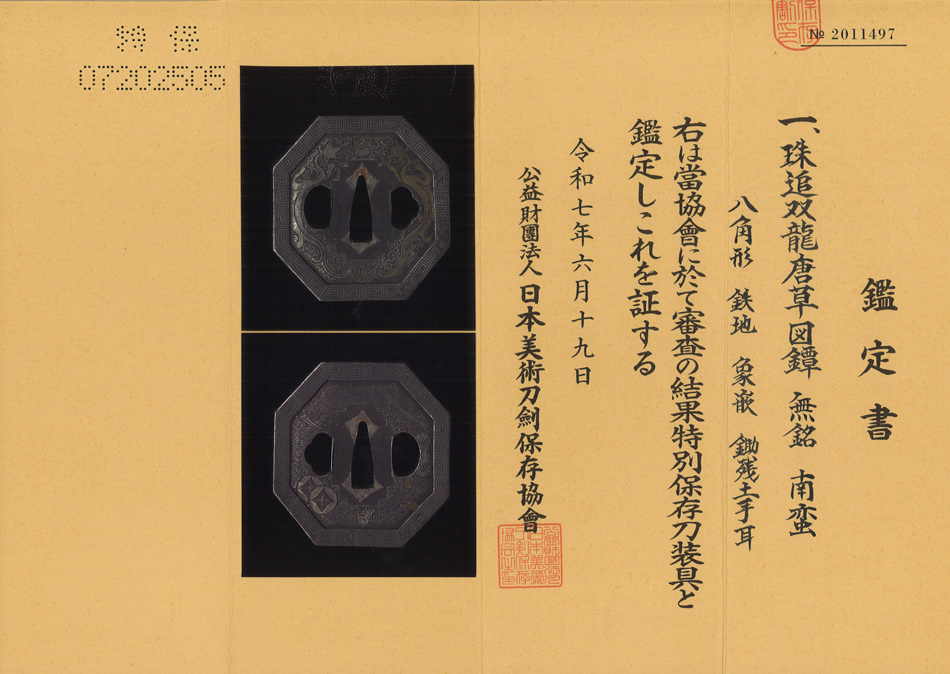 № 2011497
鑑定書
一、珠追双龍唐草図鐔 無銘 南蛮
八角形 鉄地 象嵌 鋤残土手耳
右は當協會に於て審査の結果特別保存刀装具と
鑑定しこれを証する
令和七年六月十九日
公益財團法人 日本美術刀劍保存協會
特 保
07202505